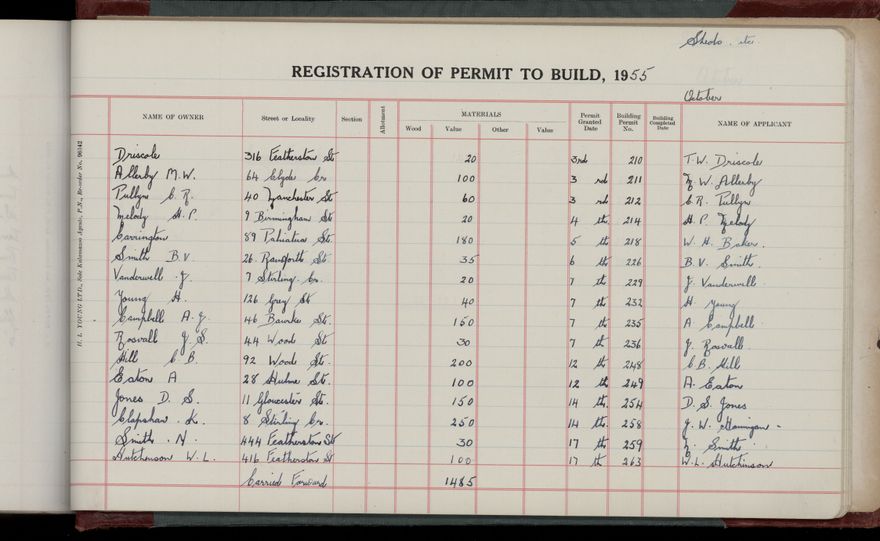 Sheds. etc.
REGISTRATION OF PERMIT TO BUILD, 1955
October
NAME OF OWNER Street or Locality Section Allotment MATERIALS Wood Value Other Value Permit Granted Date Building Permit No. Building Completed Date NAME OF APPLICANT
Driscole 316 Featherston St 20 3rd 210 T.W. Driscole
Allerby M.W. 64 Clyde Cres 100 3 rd 211 M.W. Allerby
Pullyn C.R. 40 Manchester St 60 3 rd 212 C.R. Pullyn
Melody H.P. 9 Birmingham St 20 4 th 214 H.P. Melody
Carrington 89 Pahiatua St. 180 5 th 218 W.H. Baker.
Smith B.V. 26 Ranforth St 35 6 th 226 B.V. Smith.
Vanderwell J. 7 Stirling Cr. 20 7 th 229 J. Vanderwell
Young H. 126 Grey St 40 7 th 232 H. Young
Campbell A.J. 46 Bourke St. 150 7 th 235 A. Campbell
Rosvall J.S. 44 Wood St. 30 7 th 236 J. Rosvall
Hill C.B. 92 Wood St. 200 12 th 248 C.B. Hill
Eaton A 28 Hulme St. 100 12 th 249 A. Eaton
Jones D.S. 11 Gloucester St. 150 14 th. 254 D.S. Jones
Clapshaw. K. 8 Stirling Cr. 250 14 th. 258 J.W. Hannigan -
Smith. N. 444 Featherston St 30 17 th 259 N. Smith
Hutchinson W.L. 416 Featherston St 100 17 th 263 W.L. Hutchinson
Carried Forward 1485
H. L. YOUNG LTD., Sole Kalamazoo Agents, P.N., Re-order No. 96342